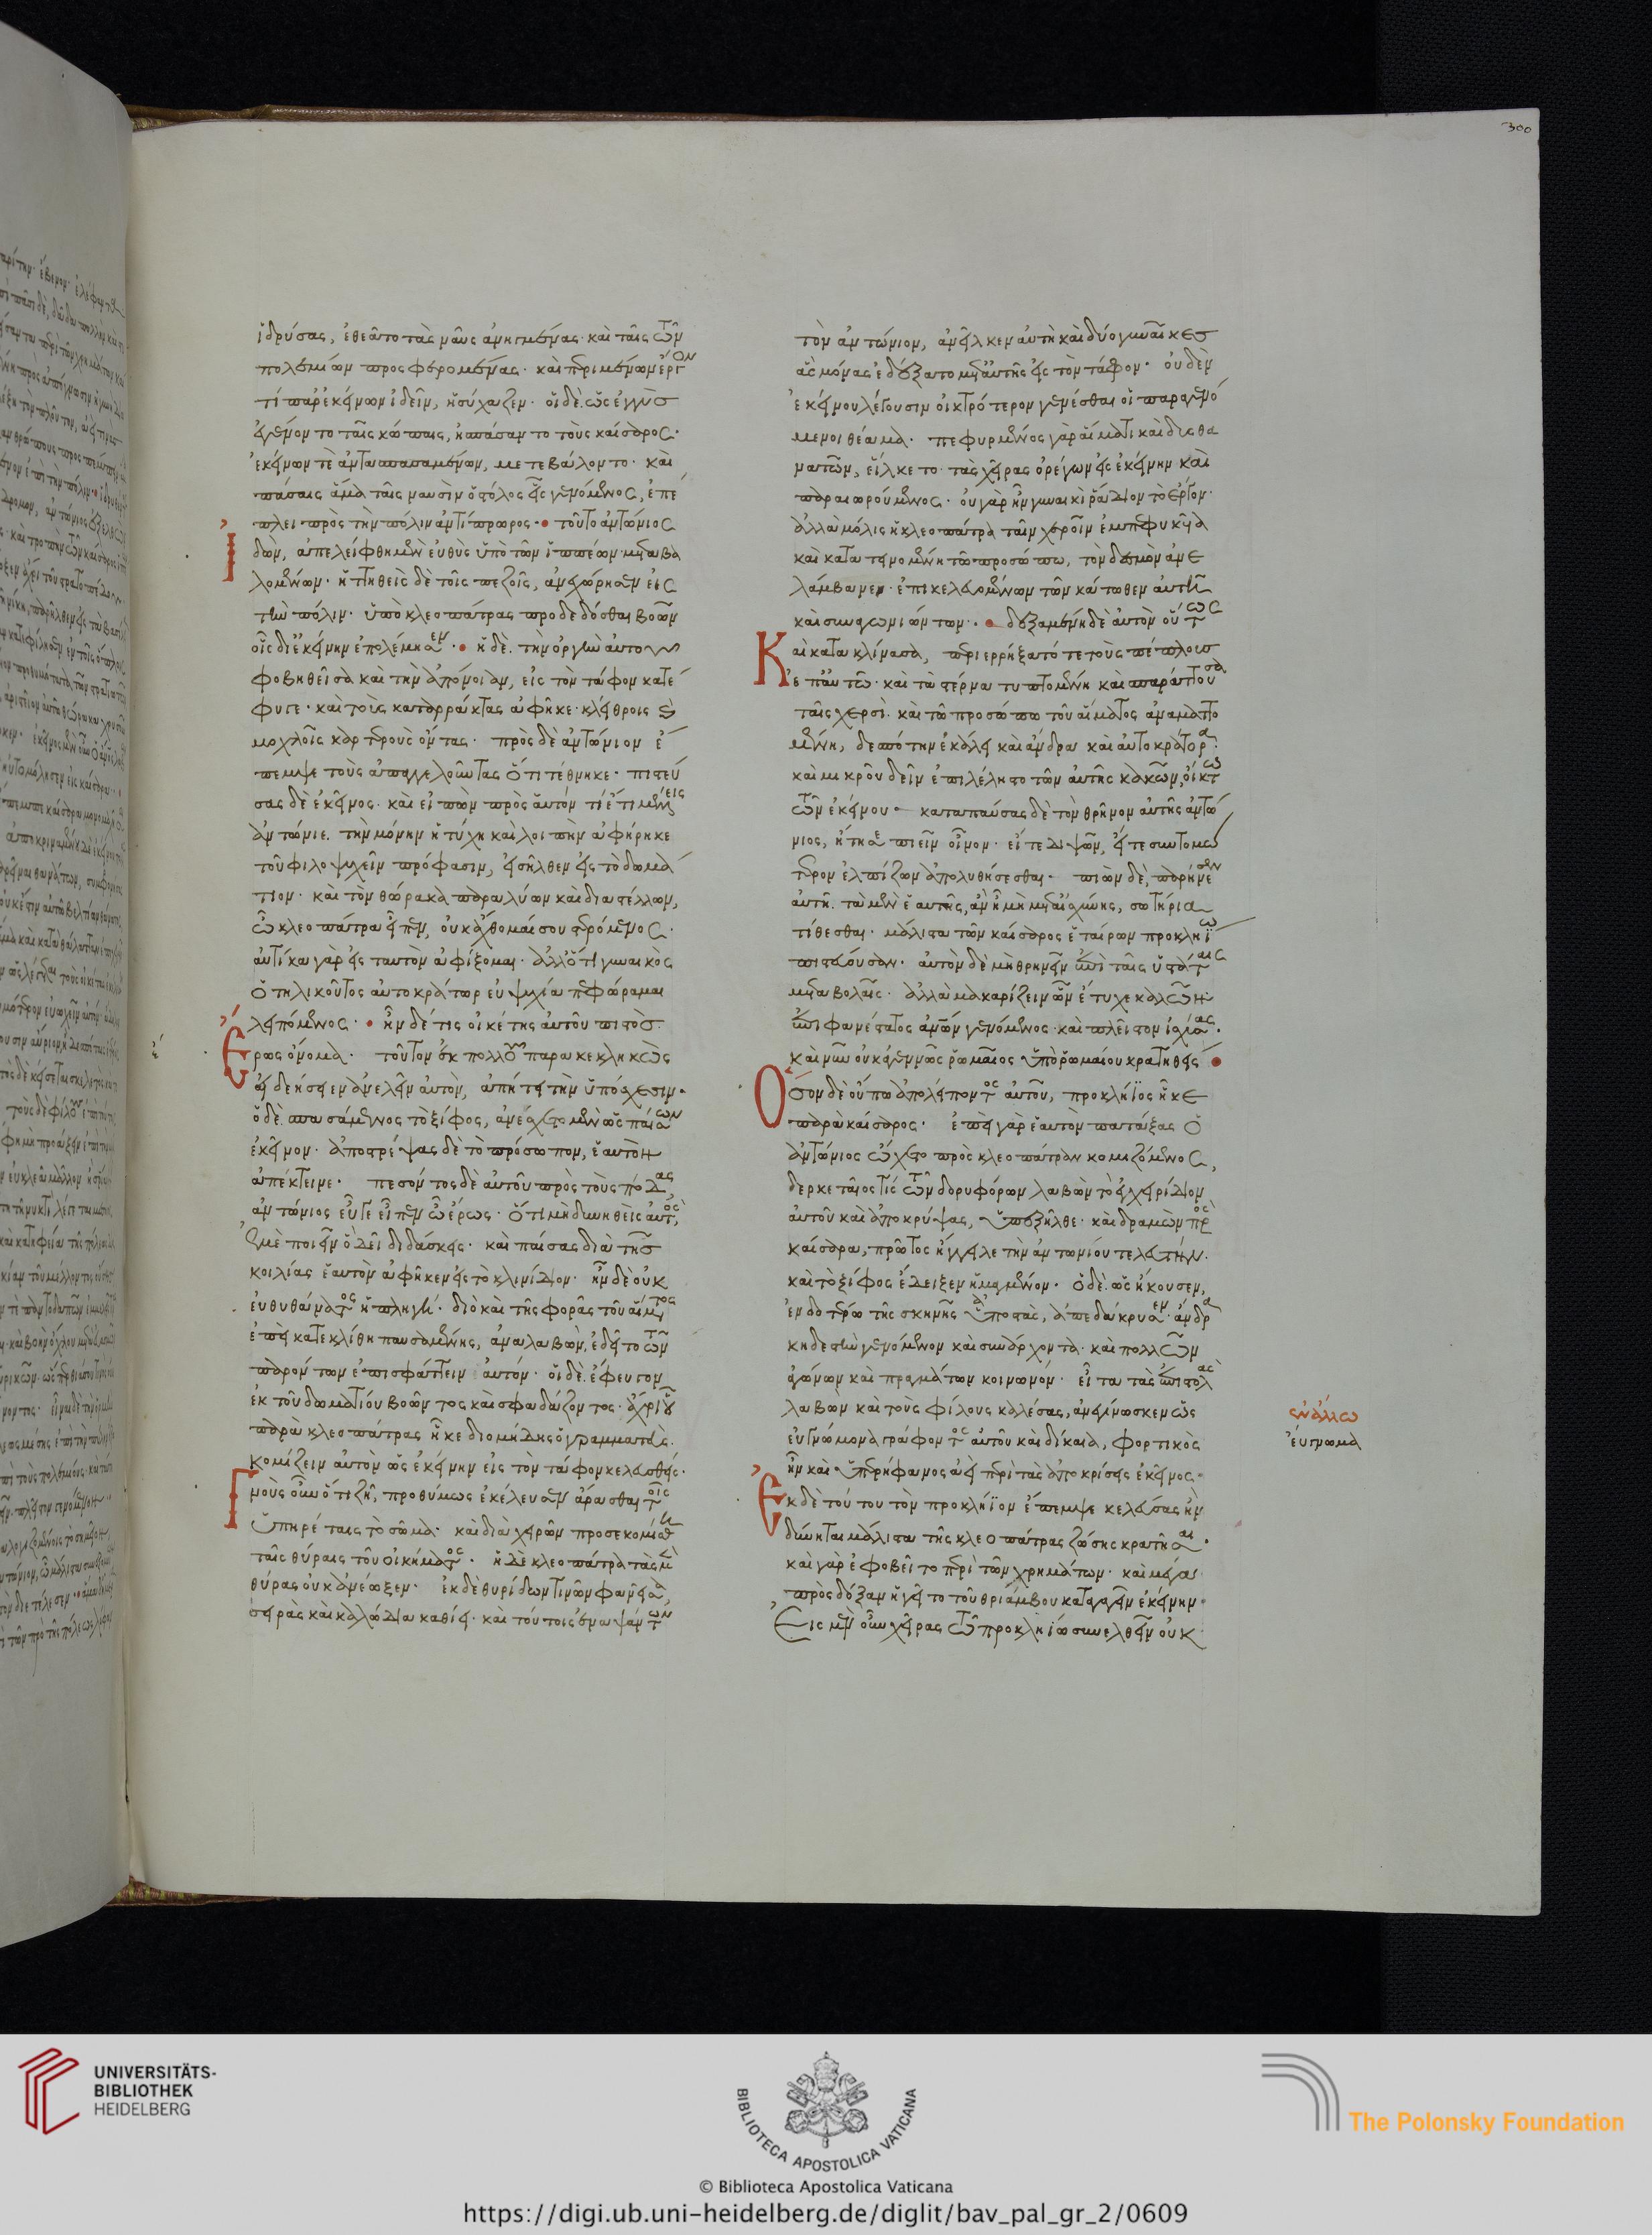 300
ἱδρύσας, ἐθεᾶτο τὰς ναῦς ἀνηγμένας· καὶ ταῖς τῶν
πολεμίων προσφερομένας· καὶ περιμένων ἔργον
τί παρ' ἐκείνων ἰδεῖν, ἡσύχαζεν· οἱ δὲ ὡς ἐγγὺς
ἐγένοντο ταῖς κώπαις, ἠσπάσαντο τοὺς καίσαρος·
ἐκείνων τὲ ἀνταπασαμένων, μετεβάλοντο· καὶ
πάσαις ἅμα ταῖς ναυσὶν ὁ στόλος εἷς γενόμενος, ἐπέ
πλει πρὸς τὴν πόλιν ἀντίπρωρος· τοῦτο ἀντώνιος
ἰδὼν, ἀπελείφθη μὲν εὐθὺς ὑπὸ τῶν ἱππέων μεταβα
λομένων· ἡττηθεὶς δὲ τοῖς πεζοῖς, ἀνεχώρησεν εἰς
τὴν πόλιν· ὑπὸ κλεοπάτρας προδεδόσθαι βοῶν
οἷς δι' ἐκείνην ἐπολέμησεν· ἡ δὲ τὴν ὀργὴν αὐτοῦ
φοβηθεῖσα καὶ τὴν ἀπόνοιαν, εἰς τὸν τάφον κατέ
φυγε· καὶ τοὺς καταρράκτας ἀφῆκε· κλείθροις καὶ
μοχλοῖς καρτεροὺς ὄντας· πρὸς δὲ ἀντώνιον ἔ
πεμψε τοὺς ἀπαγγελοῦντας ὅτι τέθνηκε· πιστεύ
σας δὲ ἐκεῖνος· καὶ εἰπὼν πρὸς αὑτόν τί ἔτι μέλλεις
ἀντώνιε· τὴν μόνην ἡ τύχη καὶ λοιπὴν ἀφήρηκε
τοῦ φιλοψυχεῖν πρόφασιν, εἰσῆλθεν εἰς τὸ δωμά
τιον· καὶ τὸν θώρακα παραλύων καὶ διαστέλλων,
ὦ κλεοπάτρα εἶπεν, οὐκ ἄχθομαί σου στερόμενος·
αὐτίκα γὰρ εἰς ταυτὸν ἀφίξομαι· ἀλλ' ὅτι γυναικὸς
ὁ τηλικοῦτος αὐτοκράτωρ εὐψυχία πεφώραμαι
λειπόμενος· ἦν δέ τις οἰκέτης αὐτοῦ πιστὸς
ἔρως ὄνομα· τοῦτον ἐκ πολλοῦ παρακεκληκὼς
εἰ δεήσειεν ἀνελεῖν αὐτὸν, ἀπήτει τὴν ὑπόσχεσιν·
ὁ δὲ σπασάμενος τὸ ξίφος, ἀνέσχε μὲν ὡς παίσων
ἐκεῖνον· ἀποστρέψας δὲ τὸ πρόσωπον, ἑαυτὸν
ἀπέκτεινε· πεσόντος δὲ αὐτοῦ πρὸς τοὺς πόδας,
ἀντώνιος εὖγε εἶπεν ὦ ἔρως· ὅτι μὴ δυνηθεὶς αὐτὸς,
ἐμὲ ποιεῖν ὃ δεῖ διδάσκεις· καὶ παίσας διὰ τῆς
κοιλίας ἑαυτὸν ἀφῆκεν εἰς τὸ κλινίδιον· ἦν δὲ οὐκ
εὐθυθάνατος ἡ πληγή· διὸ καὶ τῆς φορᾶς τοῦ αἵματος
ἐπεὶ κατεκλίθη παυσαμένης, ἀναλαβὼν, ἐδεῖτο τῶν
παρόντων ἐπισφάττειν αὐτόν· οἱ δὲ ἔφευγον
ἐκ τοῦ δωματίου βοῶντος καὶ σφαδάζοντος· ἄχρι οὗ
παρὰ κλεοπάτρας ἧκε διομήδης ὁ γραμματεὺς·
κομίζειν αὐτὸν ὡς ἐκείνην εἰς τὸν τάφον κελευσθείς·
Γνοὺς οὖν ὅτι ζῆ, προθύμως ἐκέλευσεν ἄρασθαι τοῖς
ὑπηρέταις τὸ σῶμα· καὶ διὰ χειρῶν προσεκομίσθη
ταῖς θύραις τοῦ οἰκήματος· ἡ δὲ κλεοπάτρα τὰς μὲν
θύρας οὐκ ἀνέωξεν· ἐκ δὲ θυρίδων τινῶν φανεῖσα,
σειρὰς καὶ καλώδια καθίει· καὶ τούτοις ἐναψάντων
τὸν ἀντώνιον, ἀνεῖλκεν αὐτὴ καὶ δύο γυναῖκες
ἃς μόνας ἐδέξατο μεθ' αὑτῆς εἰς τὸν τάφον· οὐδὲν
ἐκείνου λέγουσιν οἰκτρότερον γενέσθαι οἱ παραγενό
μενοι θέαμα· πεφυρμένος γὰρ αἵματι καὶ δυσθα
νατῶν, εἵλκετο· τὰς χεῖρας ὀρέγων εἰς ἐκείνην καὶ
παραιωρούμενος· οὐ γὰρ ἦν γυναικὶ ῥάδιον τὸ ἔργον·
ἀλλὰ μόλις ἡ κλεοπάτρα ταῖν χεροῖν ἐμπεφυκυῖα
καὶ κατατεινομένη τῶ προσώπω, τὸν δεσμὸν ἀνε
λάμβανεν· ἐπικελευομένων τῶν κάτωθεν αὐτῆ
καὶ συναγωνιώντων· δεξαμένη δὲ αὐτὸν οὕτως
Καὶ κατακλίνασα, περιερρήξατό τε τοὺς πέπλους
ἐπ' αὐτῶ· καὶ τὰ στέρνα τυπτομένη καὶ σπαράττουσα
ταῖς χερσὶ· καὶ τῶ προσώπω τοῦ αἵματος ἀναματτο
μένη, δεσπότην ἐκάλει καὶ ἄνδρα καὶ αὐτοκράτορα·
καὶ μικροῦ δεῖν ἐπιλέληστο τῶν αὑτῆς κακῶν, οἴκτω
τῶν ἐκείνου· καταπαύσας δὲ τὸν θρῆνον αὐτῆς ἀντώ
νιος, ἤτησε πιεῖν οἶνον· εἴτε διψῶν, εἴτε συντομώ
τερον ἐλπίζων ἀπολυθήσεσθαι· πιὼν δὲ, παρήινεσεν
αὐτῆ· τὰ μὲν ἑαυτῆς, ἂν ἦ μὴ μετ' αἰσχύνης, σωτήρια
τίθεσθαι· μάλιστα τῶν καίσαρος ἑταίρων προκληΐω
πιστεύουσαν· αὐτὸν δὲ μὴ θρηνεῖν ἐπὶ ταῖς ὑστάταις
μεταβολαῖς· ἀλλὰ μακαρίζειν ὧν ἔτυχε καλῶν·
ἐπιφανέστατος ἀνθρώπων γενόμενος· καὶ πλεῖστον ἰσχύσας·
καὶ νῦν οὐκ ἀγεννῶς ῥωμαῖος ὑπὸ ῥωμαίου κρατηθείς·
Ὅσον δὲ οὔπω ἀπολείποντος αὐτοῦ, προκλήϊος ἧκε
παρὰ καίσαρος· ἐπεὶ γὰρ ἑαυτὸν πατάξας ὁ
ἀντώνιος ὤχετο πρὸς κλεοπάτραν κομιζόμενος,
δερκεταῖός τις τῶν δορυφόρων λαβὼν τὸ ἐγχειρίδιον
αὐτοῦ καὶ ἀποκρύψας, ὑπεξῆλθε· καὶ δραμὼν πρὸς
καίσαρα, πρῶτος ἤγγειλε τὴν ἀντωνίου τελευτήν·
καὶ τὸ ξίφος ἔδειξεν ἡμαγμένον· ὁ δὲ ὡς ἤκουσεν,
ἐνδοτέρω τῆς σκηνῆς ὑποστὰς, ἀπεδάκρυσεν· ἄνδρα
κηδεστὴν γενόμενον καὶ συνάρχοντα· καὶ πολλῶν
ἀγώνων καὶ πραγμάτων κοινωνόν· εἶτα τὰς ἐπιστολὰς
λαβὼν καὶ τοὺς φίλους καλέσας, ἀνεγίνωσκεν ὡς
εὐγνώμονα γράφοντος αὐτοῦ καὶ δίκαια, φορτικὸς
ἦν καὶ ὑπερήφανος ἀεὶ περὶ τὰς ἀποκρίσεις ἐκεῖνος·
Ἐκ δὲ τούτου τὸν προκλήϊον ἔπεμψε κελεύσας ἢν
δύνηται μάλιστα τῆς κλεοπάτρας ζώσης κρατῆσαι·
καὶ γὰρ ἐφοβεῖτο περὶ τῶν χρημάτων· καὶ μέγα
πρὸς δόξαν ἡγεῖτο τοῦ θριάμβου καταγαγεῖν ἐκείνην·
Εἰς μὲν οὖν χεῖρας τῶ προκληίω συνελθεῖν οὐκ
ἐν ἄλλω
εὐγνωμα
UNIVERSITÄTS-
BIBLIOTHEK
HEIDELBERG
BIBLIOTECA APOSTOLICA VATICANA
The Polonsky Foundation
© Biblioteca Apostolica Vaticana
https://digi.ub.uni-heidelberg.de/diglit/bav_pal_gr_2/0609